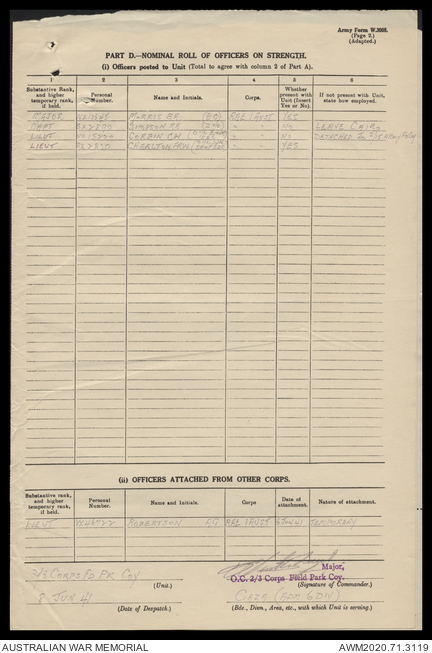 Army Form W.3008.
(Page 2.)
(Adapted.)
PART D.—NOMINAL ROLL OF OFFICERS ON STRENGTH.
(i) Officers posted to Unit (Total to agree with column 2 of Part A).
1 2 3 4 5 6
Substantive Rank, and higher temporary rank, if held. Personal Number. Name and Initials. Corps. Whether present with Unit (Insert Yes or No). If not present with Unit, state how employed.
MAJOR MORRIS B.R. (OC) RAE (AUST YES
CAPT SIMPSON (2IC) " " NO LEAVE CAIRO
LIEUT CORBIN C.W. " " NO DETACHED
LIEUT CHARLTON " " YES
(ii) OFFICERS ATTACHED FROM OTHER CORPS.
Substantive rank, and higher temporary rank, if held. Personal Number. Name and Initials. Corps Date of attachment. Nature of attachment.
LIEUT ROBERTSON RAE (AUST TEMPORARY
2/3 CORPS FD PK COY
(Unit.)
Major,
O.C. 2/3 Corps Field Park Coy.
(Signature of Commander.)
8 JUN 41
(Date of Despatch.)
GAZA (ADM 6 DIV)
(Bde., Divn., Area, etc., with which Unit is serving.)
AUSTRALIAN WAR MEMORIAL
AWM2020.71.3119